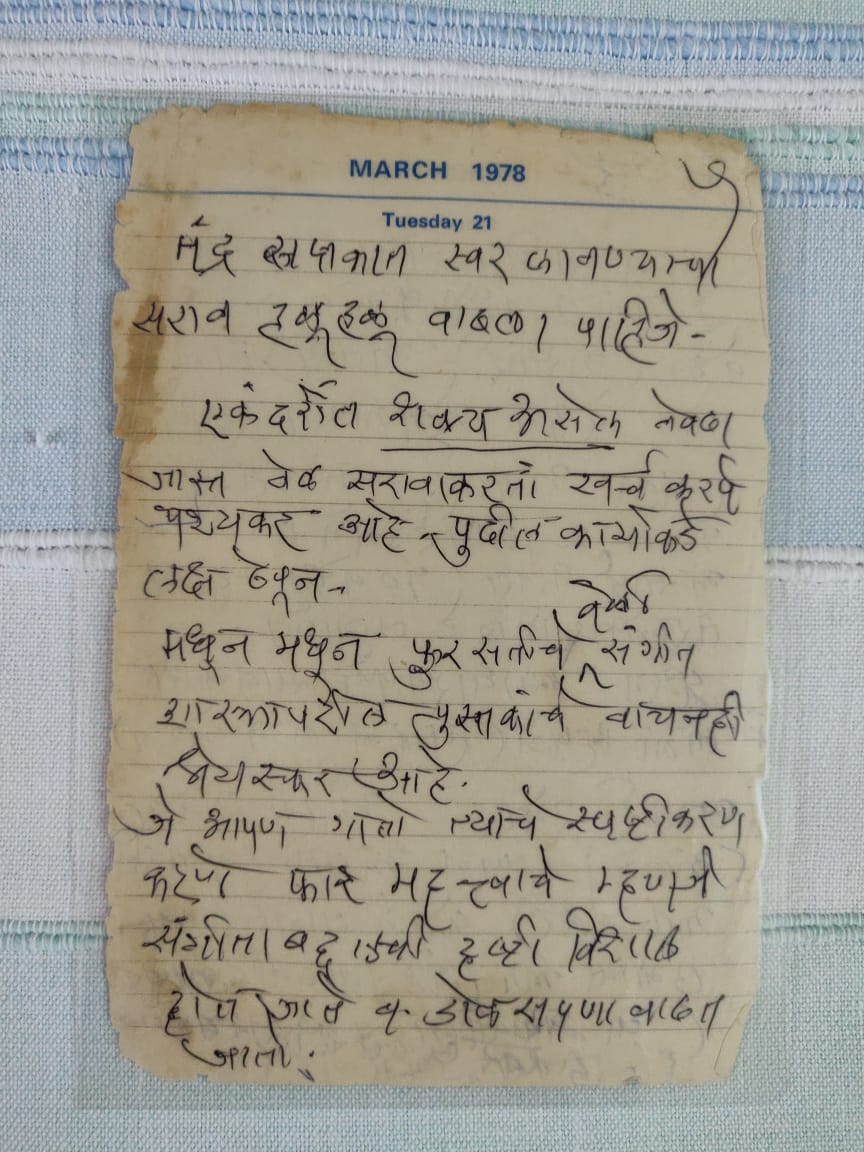 MARCH 1978
Tuesday 21
मंद्र सप्तकात स्वर लावण्याचा
सराव हळू हळू वाढला पाहिजे-
एकंदरीत शक्य असेल तेवढा
जास्त वेळ सरावाकरतां खर्च करणे
आहे. पुढील कार्याकडे
लक्ष ठेवून-
वेळी
मधून मधून फुरसतीचे संगीत
शास्त्रापरील पुस्तकांचे वाचनही
श्रेयस्कर आहे.
जे आपण गातो त्याचे स्पष्टीकरण
करणे फार महत्त्वाचे म्हणजे
संगीताबद्दलची दृष्टी विशाळ
होत जाते व डोळसपणा वाढत
जातो.